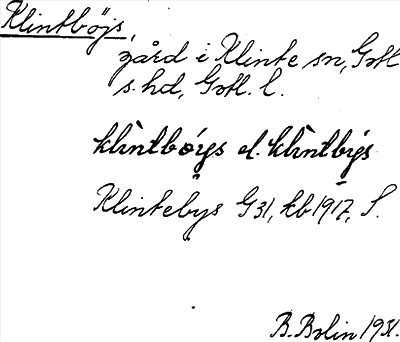 Klintböjs,
gård i Klinte sn, Gotl
s. hd, Gotl. l.
klìntbóys el. klìntbýs
Klintebys G31, kb 1917, S.
B. Bolin 1931.